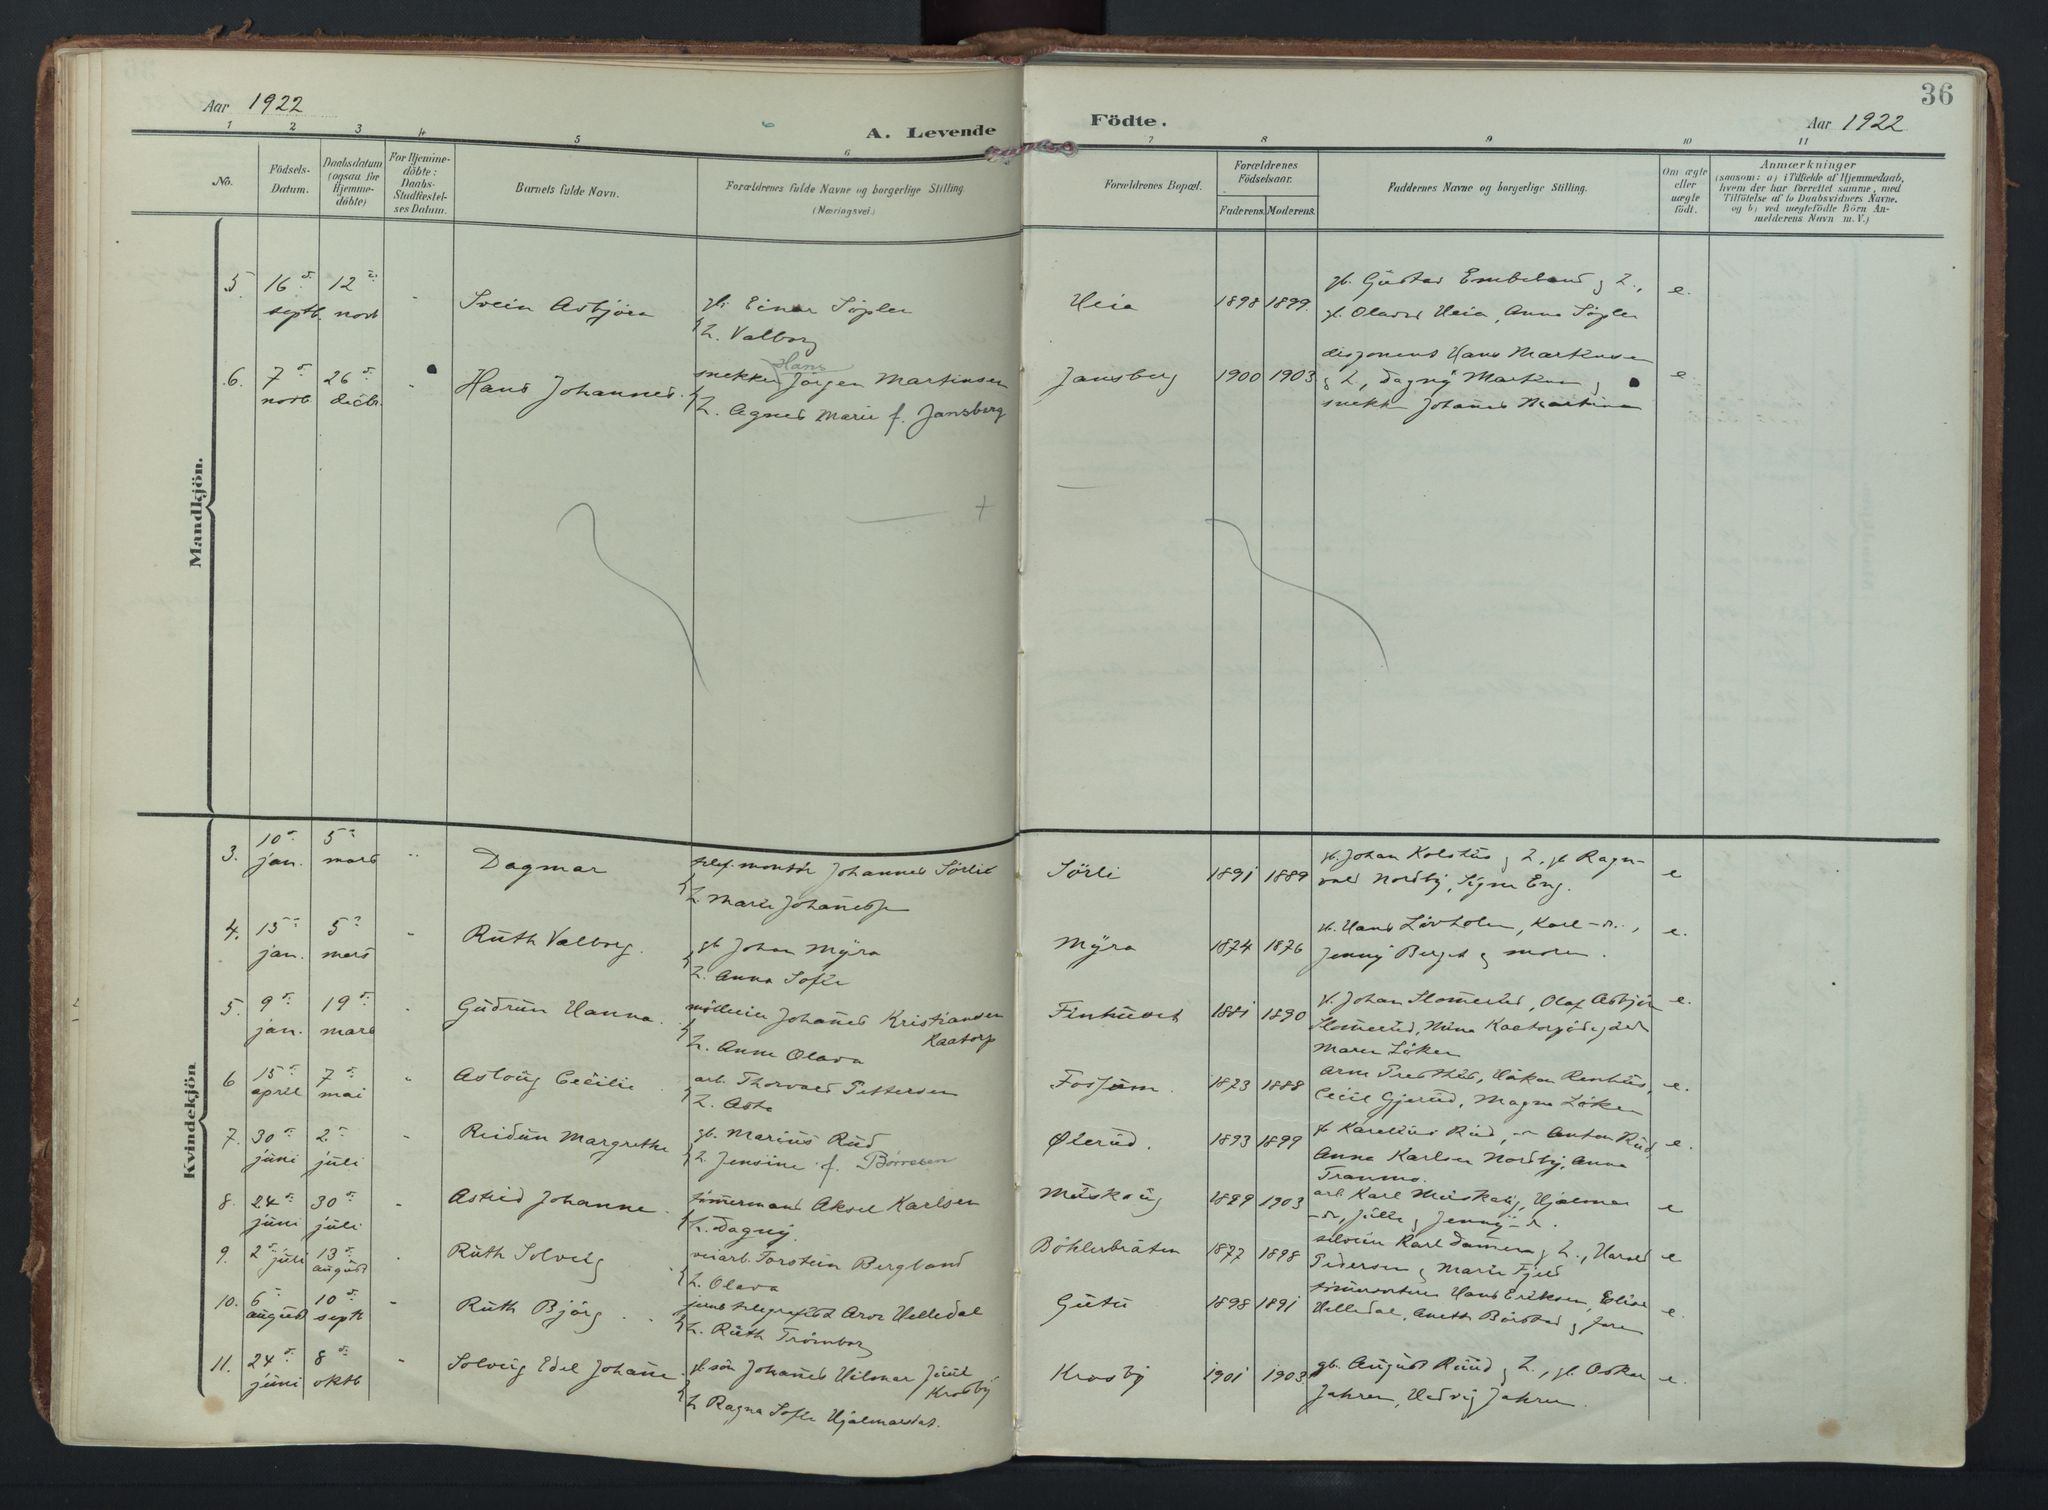 36
Aar 1922
A. Levende
Födte.
Aar 1922
1 2 3 4 5 6 7 8 9 10 11
No.
Födsels-
Datum.
Daabsdatum
(ogsaa for
Hjemme-
döbte)
For Hjemme-
döbte:
Daabs-
Stadfæstel-
ses Datum.
Barnets fulde Navn.
Forældrenes fulde Navne og borgerlige Stilling.
(Næringsvei.)
Forældrenes Bopæl.
Forældrenes
Födselsaar.
Faderens. Moderens.
Faddernes Navne og borgerlige Stilling.
Om ægte
eller
uægte
födt.
Anmærkninger
(saasom: a) i Tilfælde af Hjemmedaab,
hvem der har forrettet samme, med
Tilföielse af to Daabsvidners Navne,
og b) ved uægtefödte Börn An-
melderens Navn m. V.)
Mandkjön.
5. 16 septb. 12 novb " Svein Asbjörn gb. Einar Sopler
& h. Valborg
Heia 1898 1899. gb. Gustav Embeland & h., e.
gb. Olaves Heia, Anna Sopler
6. 7 novb 26 decbr. " Hans Johannes. snekker Hans Jörgen Martinsen
& h. Agnes Marie f. Jansberg
Jansberg 1900 1903. disponent Hans Martinsen e
& h., Dagny &
snekker Johannes
Kvindekjön
3. 10 jan. 5 mars " Dagmar telef. montör Johannes Sörlie
& h. Marie
Sörli 1891 1889 gb. Johan Kolstad & h., gb. Ragn- e
vald Nordby, Signe Eng.
4. 15 jan. 5 mars " Ruth Valborg. gb Johan Myra
& h. Anna Sofie
Myra 1874 1876 gb. Hans Lövholen, Karl e.
Jenny Berget & moren.
5. 9 jan. 19 mars " Gudrun Hanna. Johannes Kristiansen
Kaatorp
& h. Anne Olava
1881 1890 gb. Johan Slomerud, Olaf Asbjörn e.
Slomerud, Nina
Maren Löken
6 15 april 7 mai " Aslaug Cecilie. arb. Thorvald Pettersen
& h. Asta
Fossum. 1873 1888 Arne Håkon e.
Cecil Gjerud, Magna Löken
7. 30 juni 2 juli " Reidun Margrethe gb. Marius Rud
& h. Jensine f. Børresen
Ølerud. 1893 1899 gb Karelius Rud, Anton Rud, e.
Anna Karlsen Nordby, Anna
Tranmo.
8. 24 juni 30 juli " Astrid Johanne. tömermand Aksel Karlsen
& h. Dagny.
Muskaug 1899 1903 arb. Karl Muskaug, Hjalmar e
Julle & Jenny
9. 2 juli 13 august " Ruth Solveig veiarb. Torstein Bergland
& h. Olava
Böhlerbråten 1877 1898 Karl & h., Harald e
Pedersen & Marie Fjeld
10. 6 august 10 septb " Ruth Björg. jernb. telegrafist Arne Helledal
& h. Ruth Trömborg
Gutu 1898 1891 Hans Eriksen, Elise e.
Helledal, Anette
11. 24 juni 8 oktb " Solveig Edel Johanne gb. sön Johannes Hilmar Juul
Krosby
& h Ragna Sofie Hjalmarsdat.
Krosby 1901 1903. gb. August Ruud & h., gb. Oskar e.
Jahren, Hedvig Jahren.